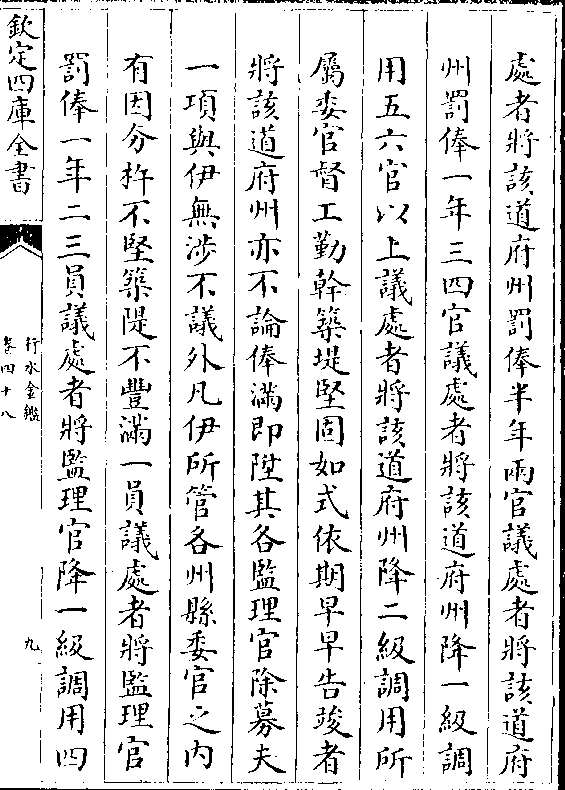 處者將該道府州罰俸半年兩官議處者將該道府
州罰俸一年三四官議處者將該道府州降一級調
用五六官以上議處者將該道府州降二級調用所
屬委官督工勤幹築堤堅固如式依期早早告竣者
將該道府州亦不論俸滿即陞其各監理官除募夫
一項與伊無涉不議外凡伊所管各州縣委官之内
有因分杵不堅築隄不豐滿一員議處者將監理官
罰俸一年二三員議處者將監理官降一級調用四
欽定四庫全書
行水金鑑
卷四十八
九